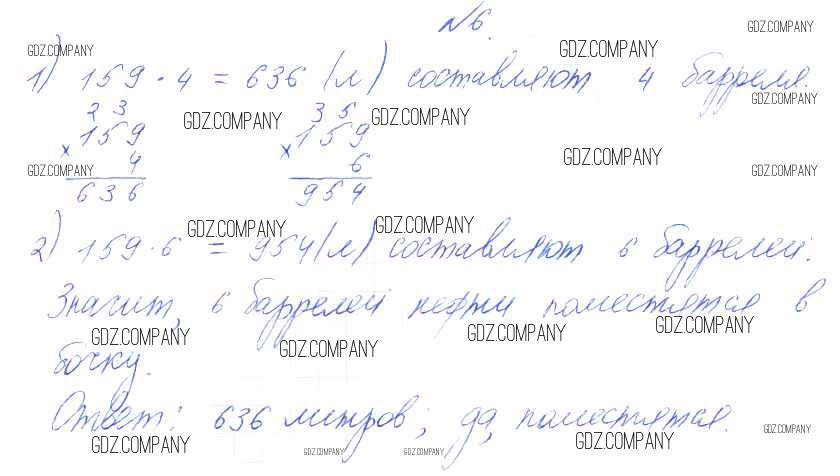 №6.
GDZ.COMPANY
GDZ.COMPANY GDZ.COMPANY
1) 159 · 4 = 636 (л) составляют 4 барреля.
GDZ.COMPANY
2 3 3 5
GDZ.COMPANY GDZ.COMPANY
159 159
× ×
GDZ.COMPANY
4 6
GDZ.COMPANY GDZ.COMPANY
636 954
GDZ.COMPANY GDZ.COMPANY
2) 159 · 6 = 954 (л) составляют 6 баррелей.
Значит, 6 баррелей нефти поместятся в
GDZ.COMPANY GDZ.COMPANY GDZ.COMPANY
GDZ.COMPANY
бочку.
Ответ: 636 литров; да, поместятся.
GDZ.COMPANY
GDZ.COMPANY GDZ.COMPANY
GDZ.COMPANY GDZ.COMPANY